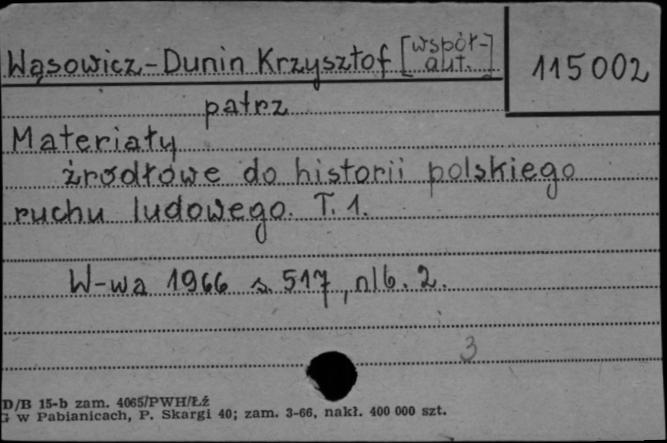 Wąsowicz-Dunin Krzysztof [współ-
aut.]
115002
patrz
Materiały
źródłowe do historii polskiego
ruchu ludowego. T. 1.
W-wa 1966 s. 517, nlb. 2.
3
D/B 15-b zam. 4065/PWH/Łź
G w Pabianicach, P. Skargi 40; zam. 3-66, nakł. 400 000 szt.